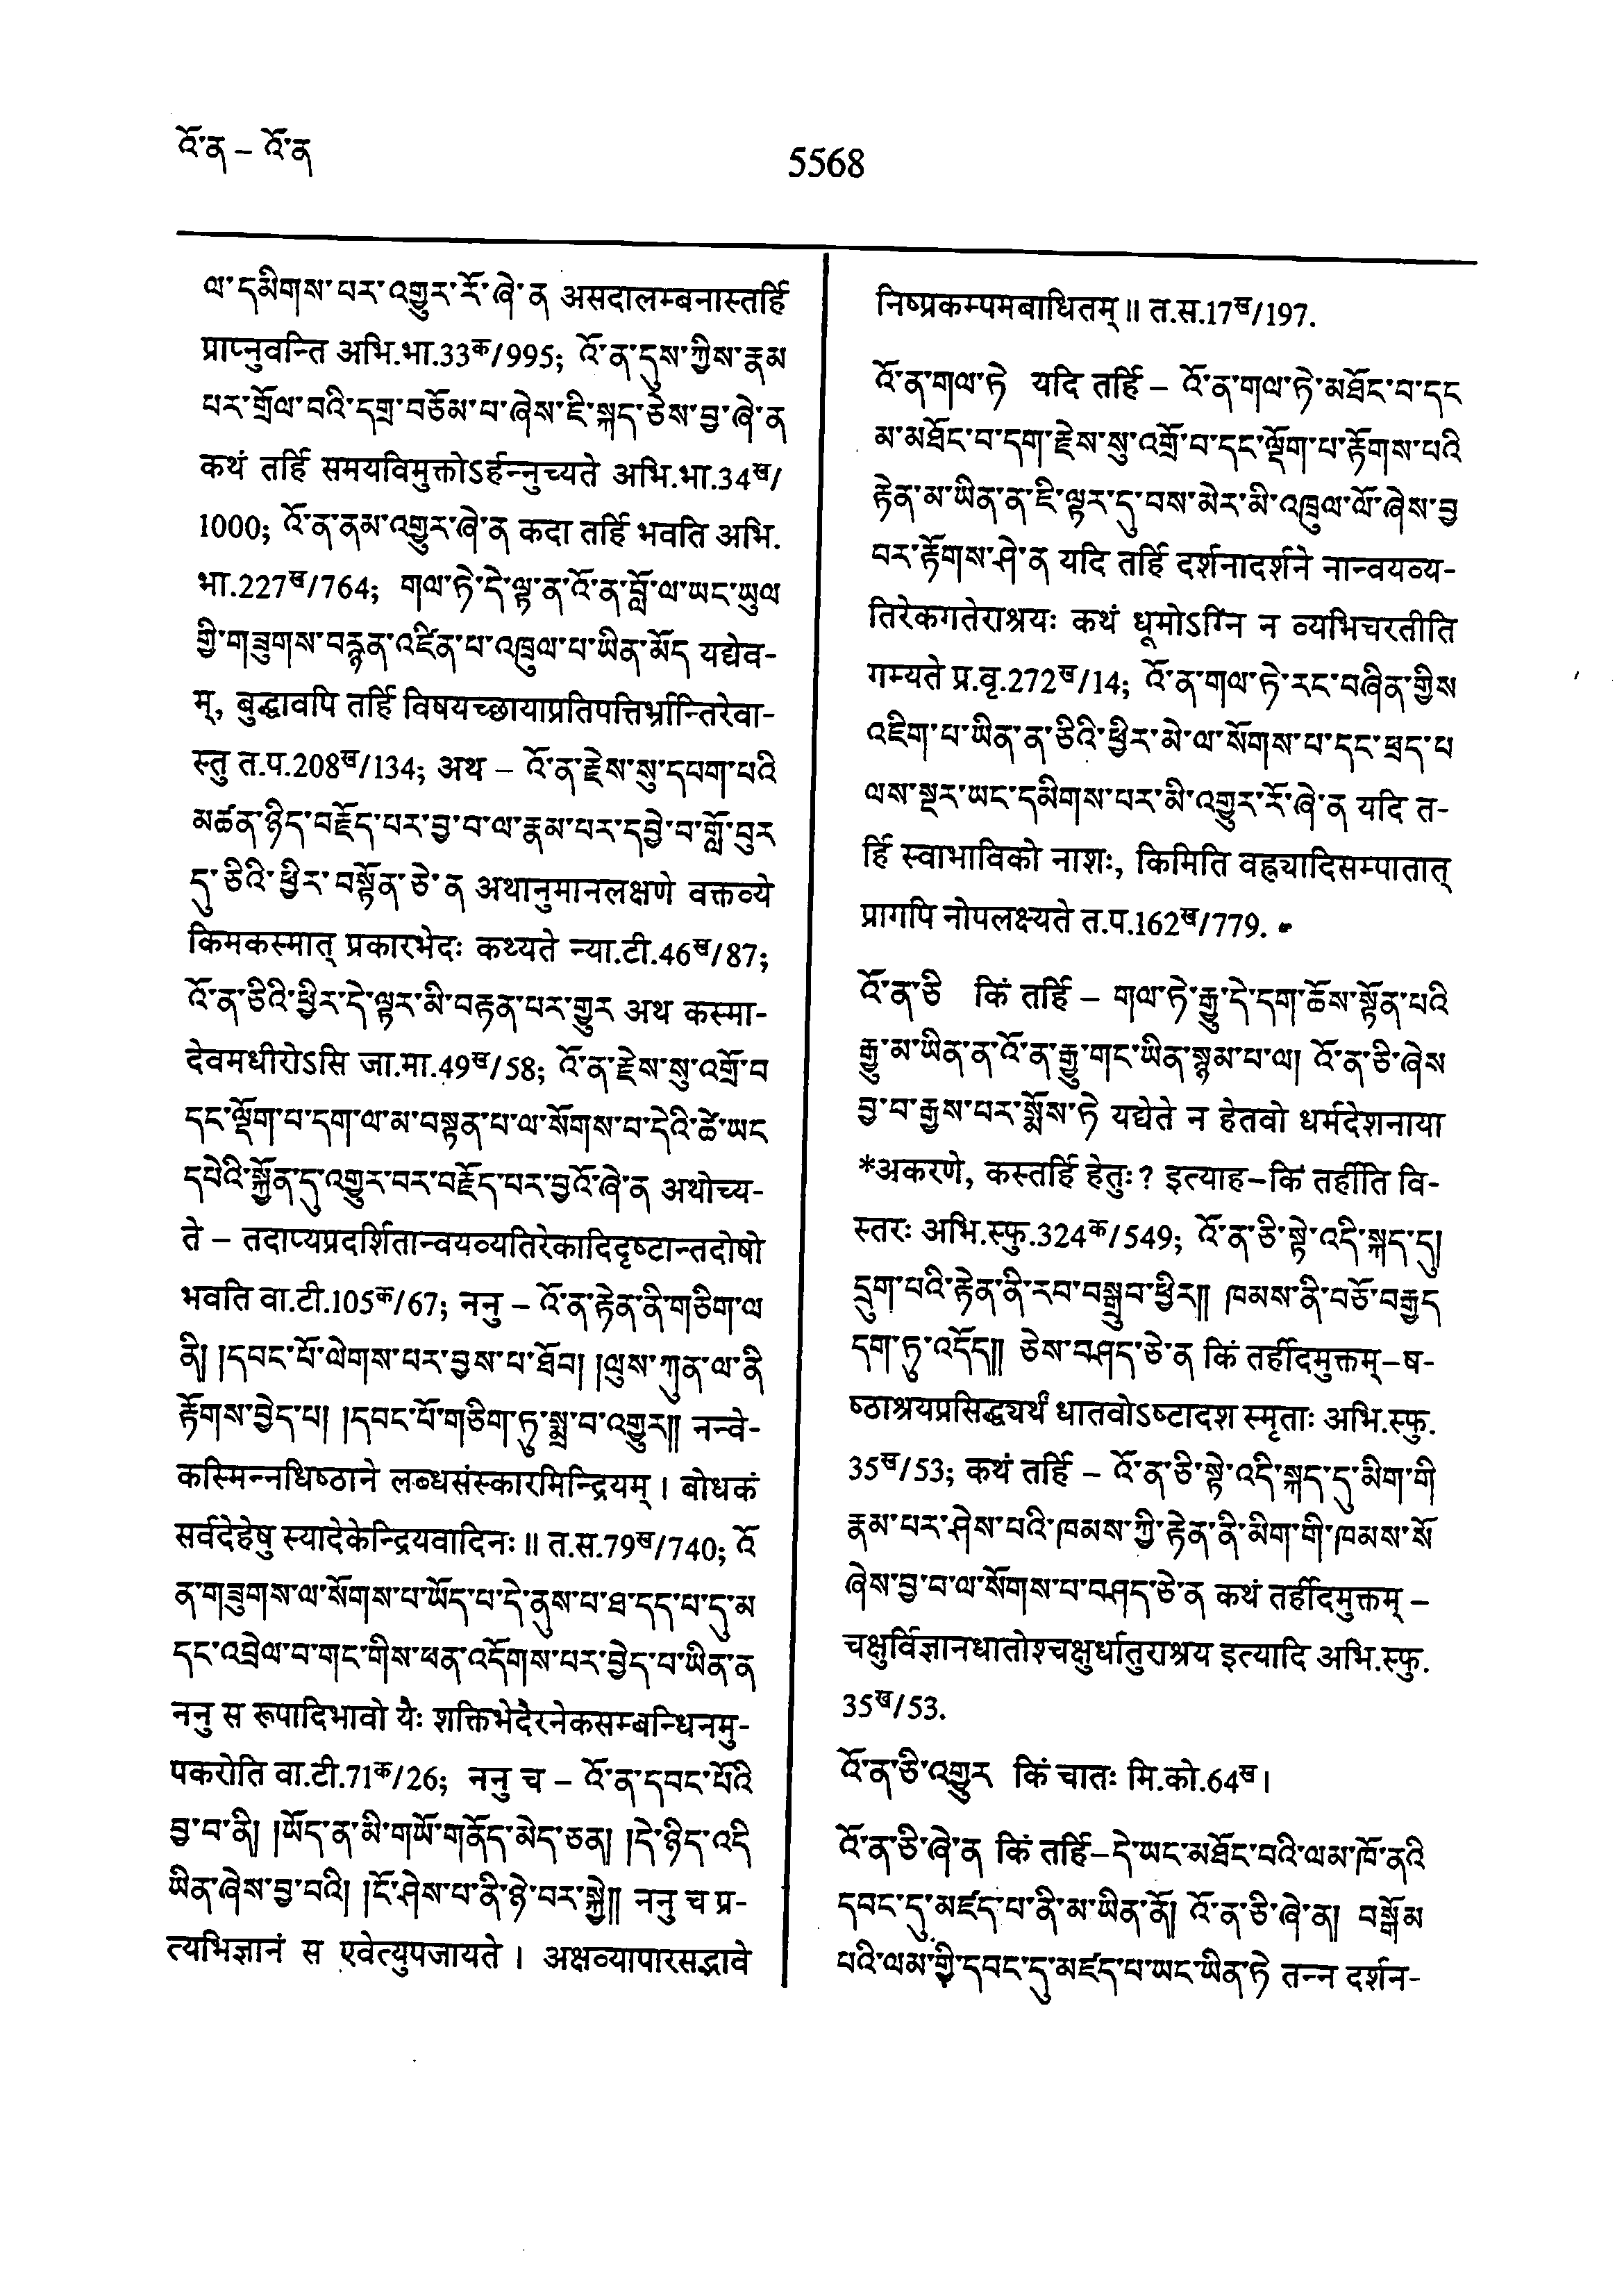 འོ་ན – འོ་ན
5568
ལ་དམིགས་པར་འགྱུར་རོ་ཞེ་ན असदालम्बनास्तर्हि
प्राप्नुवन्ति अभि.भा.33क/995; འོ་ན་དུས་ཀྱིས་རྣམ
པར་གྲོལ་བའི་དགྲ་བཅོམ་པ་ཞེས་ཇི་སྐད་ཅེས་བྱ་ཞེ་ན
कथं तर्हि समयविमुक्तोऽर्हन्नुच्यते अभि.भा.34ख/
1000; འོ་ན་ནམ་འགྱུར་ཞེ་ན कदा तर्हि भवति अभि.
भा.227ख/764; གལ་ཏེ་དེ་ལྟ་ན་འོ་ན་བློ་ལ་ཡང་ཡུལ
གྱི་གཟུགས་བརྙན་འཛིན་པ་འཁྲུལ་པ་ཡིན་མོད यद्येव-
म्, बुद्धावपि तर्हि विषयच्छायाप्रतिपत्तिर्भ्रान्तिरेवा-
स्तु त.प.208ख/134; अथ – འོ་ན་རྗེས་སུ་དཔག་པའི
མཚན་ཉིད་བརྗོད་པར་བྱ་བ་ལ་རྣམ་པར་དབྱེ་བ་གློ་བུར
དུ་ཅིའི་ཕྱིར་བསྟོན་ཅེ་ན अथानुमानलक्षणे वक्तव्ये
किमकस्मात् प्रकारभेदः कथ्यते न्या.टी.46ख/87;
འོ་ན་ཅིའི་ཕྱིར་དེ་ལྟར་མི་བརྟན་པར་གྱུར अथ कस्मा-
देवमधीरोऽसि जा.मा.49ख/58; འོ་ན་རྗེས་སུ་འགྲོ་བ
དང་ལྡོག་པ་དག་ལ་མ་བསྟན་པ་ལ་སོགས་པ་དེའི་ཚེ་ཡང
དཔེའི་སྐྱོན་དུ་འགྱུར་བར་བརྗོད་པར་བྱའོ་ཞེ་ན अथोच्य-
ते – तदाप्यप्रदर्शितान्वयव्यतिरेकादिदृष्टान्तदोषो
भवति वा.टी.105क/67; ननु – འོ་ན་རྟེན་ནི་གཅིག་ལ
ནི། །དབང་པོ་ལེགས་པར་བྱས་པ་ཐོབ། །ལུས་ཀུན་ལ་ནི
རྟོགས་བྱེད་པ། །དབང་པོ་གཅིག་ཏུ་སྨྲ་བ་འགྱུར༎ नन्वे-
कस्मिन्नधिष्ठाने लब्धसंस्कारमिन्द्रियम्। बोधकं
सर्वदेहेषु स्यादेकेन्द्रियवादिनः॥ त.स.79ख/740; འོ
ན་གཟུགས་ལ་སོགས་པ་ཡོད་པ་དེ་ནུས་པ་ཐ་དད་པ་དུ་མ
དང་འབྲེལ་བ་གང་གིས་ཕན་འདོགས་པར་བྱེད་པ་ཡིན་ན
ननु स रूपादिभावो यैः शक्तिभेदैरनेकसम्बन्धिनमु-
पकरोति वा.टी.71क/26; ननु च – འོ་ན་དབང་པོའི
བྱ་བ་ནི། །ཡོད་ན་མི་གཡོ་གནོད་མེད་ཅན། །དེ་ཉིད་འདི
ཡིན་ཞེས་བྱ་བའི། །ངོ་ཤེས་པ་ནི་ཉེ་བར་སྐྱེ༎ ननु च प्र-
त्यभिज्ञानं स एवेत्युपजायते। अक्षव्यापारसद्भावे
निष्प्रकम्पमबाधितम्॥ त.स.17ख/197.
འོ་ན་གལ་ཏེ यदि तर्हि – འོ་ན་གལ་ཏེ་མཐོང་བ་དང
མ་མཐོང་བ་དག་རྗེས་སུ་འགྲོ་བ་དང་ལྡོག་པ་རྟོགས་པའི
རྟེན་མ་ཡིན་ན་ཇི་ལྟར་དུ་བས་མེར་མི་འཁྲུལ་ལོ་ཞེས་བྱ
བར་རྟོགས་ཤེ་ན यदि तर्हि दर्शनादर्शने नान्वयव्य-
तिरेकगतेराश्रयः कथं धूमोऽग्निं न व्यभिचरतीति
गम्यते प्र.वृ.272ख/14; འོ་ན་གལ་ཏེ་རང་བཞིན་གྱིས
འཇིག་པ་ཡིན་ན་ཅིའི་ཕྱིར་མེ་ལ་སོགས་པ་དང་ཕྲད་པ
ལས་སྔར་ཡང་དམིགས་པར་མི་འགྱུར་རོ་ཞེ་ན यदि त-
र्हि स्वाभाविको नाशः, किमिति वह्न्यादिसम्पातात्
प्रागपि नोपलक्ष्यते त.प.162ख/779.
འོ་ན་ཅི किं तर्हि – གལ་ཏེ་རྒྱུ་དེ་དག་ཆོས་སྟོན་པའི
རྒྱུ་མ་ཡིན་ན་འོ་ན་རྒྱུ་གང་ཡིན་སྙམ་པ་ལ། འོ་ན་ཅི་ཞེས
བྱ་བ་རྒྱས་པར་སྨོས་ཏེ यद्येते न हेतवो धर्मदेशनाया
*अकरणे, कस्तर्हि हेतुः? इत्याह–किं तर्हीति वि-
स्तरः अभि.स्फु.324क/549; འོ་ན་ཅི་སྟེ་འདི་སྐད་དུ།
དྲུག་པའི་རྟེན་ནི་རབ་བསྒྲུབ་ཕྱིར༎ ཁམས་ནི་བཅོ་བརྒྱད
དག་ཏུ་འདོད༎ ཅེས་བཤད་ཅེ་ན किं तर्हीदमुक्तम्–ष-
ष्ठाश्रयप्रसिद्ध्यर्थं धातवोऽष्टादश स्मृताः अभि.स्फु.
35ख/53; कथं तर्हि – འོ་ན་ཅི་སྟེ་འདི་སྐད་དུ་མིག་གི
རྣམ་པར་ཤེས་པའི་ཁམས་ཀྱི་རྟེན་ནི་མིག་གི་ཁམས་སོ
ཞེས་བྱ་བ་ལ་སོགས་པ་བཤད་ཅེ་ན कथं तर्हीदमुक्तम् –
चक्षुर्विज्ञानधातोश्चक्षुर्धातुराश्रय इत्यादि अभि.स्फु.
35ख/53.
འོ་ན་ཅི་འགྱུར किं चातः मि.को.64ख।
འོ་ན་ཅི་ཞེ་ན किं तर्हि–དེ་ཡང་མཐོང་བའི་ལམ་ཁོ་ནའི
དབང་དུ་མཛད་པ་ནི་མ་ཡིན་ནོ། འོ་ན་ཅི་ཞེ་ན། བསྒོམ
པའི་ལམ་གྱི་དབང་དུ་མཛད་པ་ཡང་ཡིན་ཏེ तन्न दर्शन-